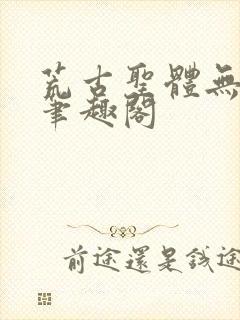 荒古聖體無
筆趣閣
前途還是錢途